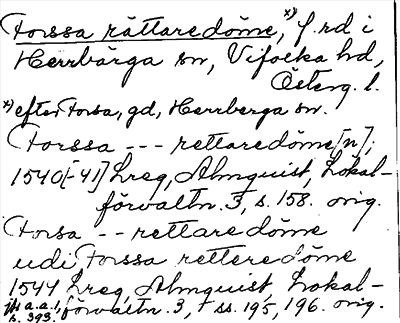 Forssa rättaredöme, x) f.rd i
Herrbärga sn, Vifolka hd,
Österg. l.
x) efter Forsa, gd, Herrberga sn.
Forssa --- rettaredöme[n];
1540[-41] Lreg, Almquist, Lokal-
förvaltn. 3, s. 158. orig.
Forsa -- rettare döme
udi, Forssa retteredöme
1544 Lreg, Almquist, Lokal-
förvaltn. 3, ss. 195, 196. orig.
jfr a.a. 1,
s. 393.